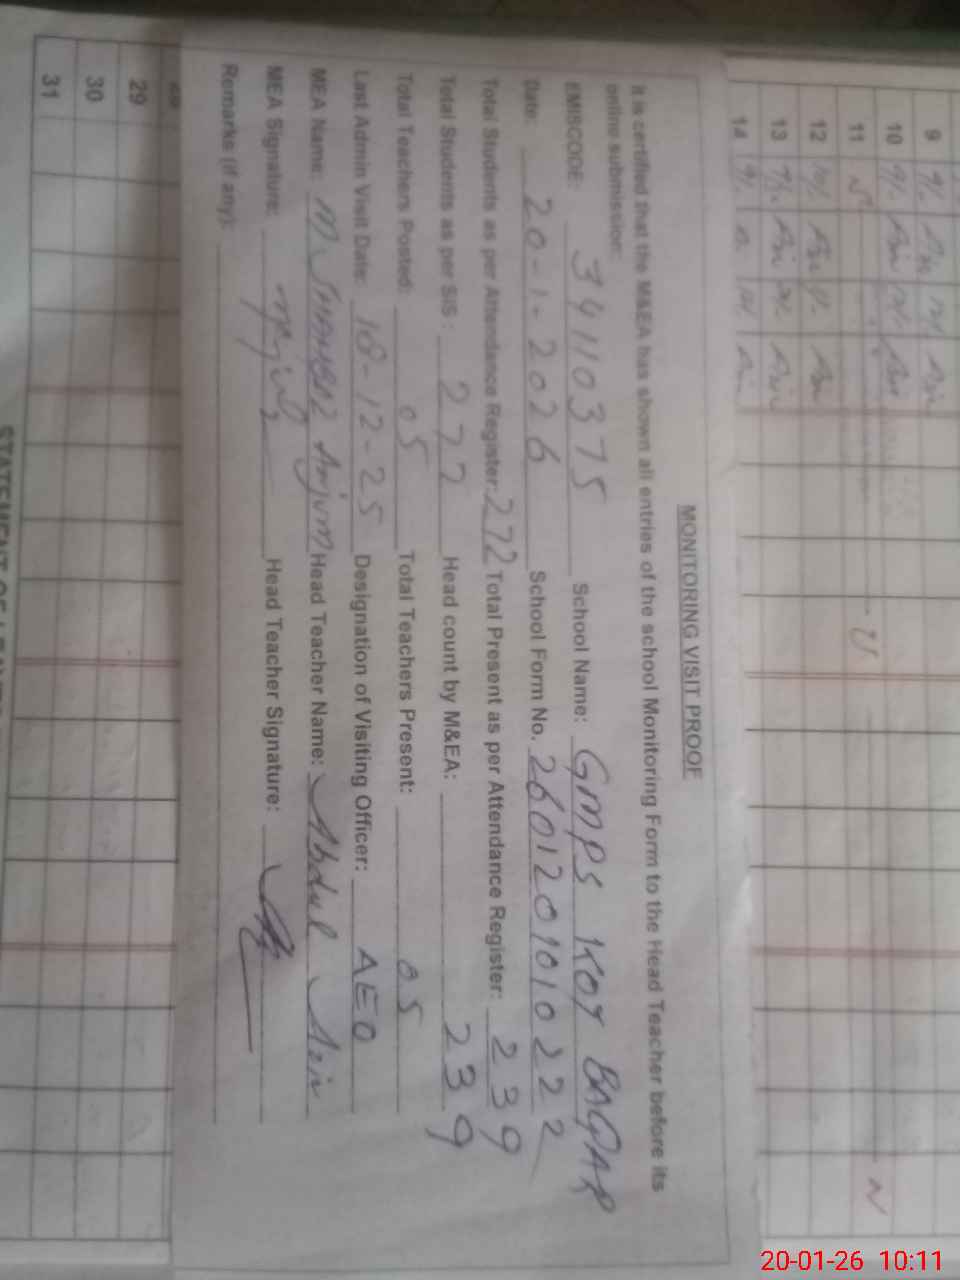 MONITORING VISIT PROOF
It is certified that the M&EA has shown all entries of the school Monitoring Form to the Head Teacher before its
online submission:
EMISCODE: 34110375 School Name: GMPS KOT BAQAR
Date: 20-1-2026 School Form No. 260120101022
Total Students as per Attendance Register: 272 Total Present as per Attendance Register: 239
Total Students as per SIS: 277 Head count by M&EA: 239
Total Teachers Posted: 05 Total Teachers Present: 05
Last Admin Visit Date: 18-12-25 Designation of Visiting Officer: AEO
MEA Name: M Anjum Head Teacher Name: Abdul
MEA Signature: Head Teacher Signature:
Remarks (if any):
9
10
11
12
13
14
29
30
31
20-01-26 10:11